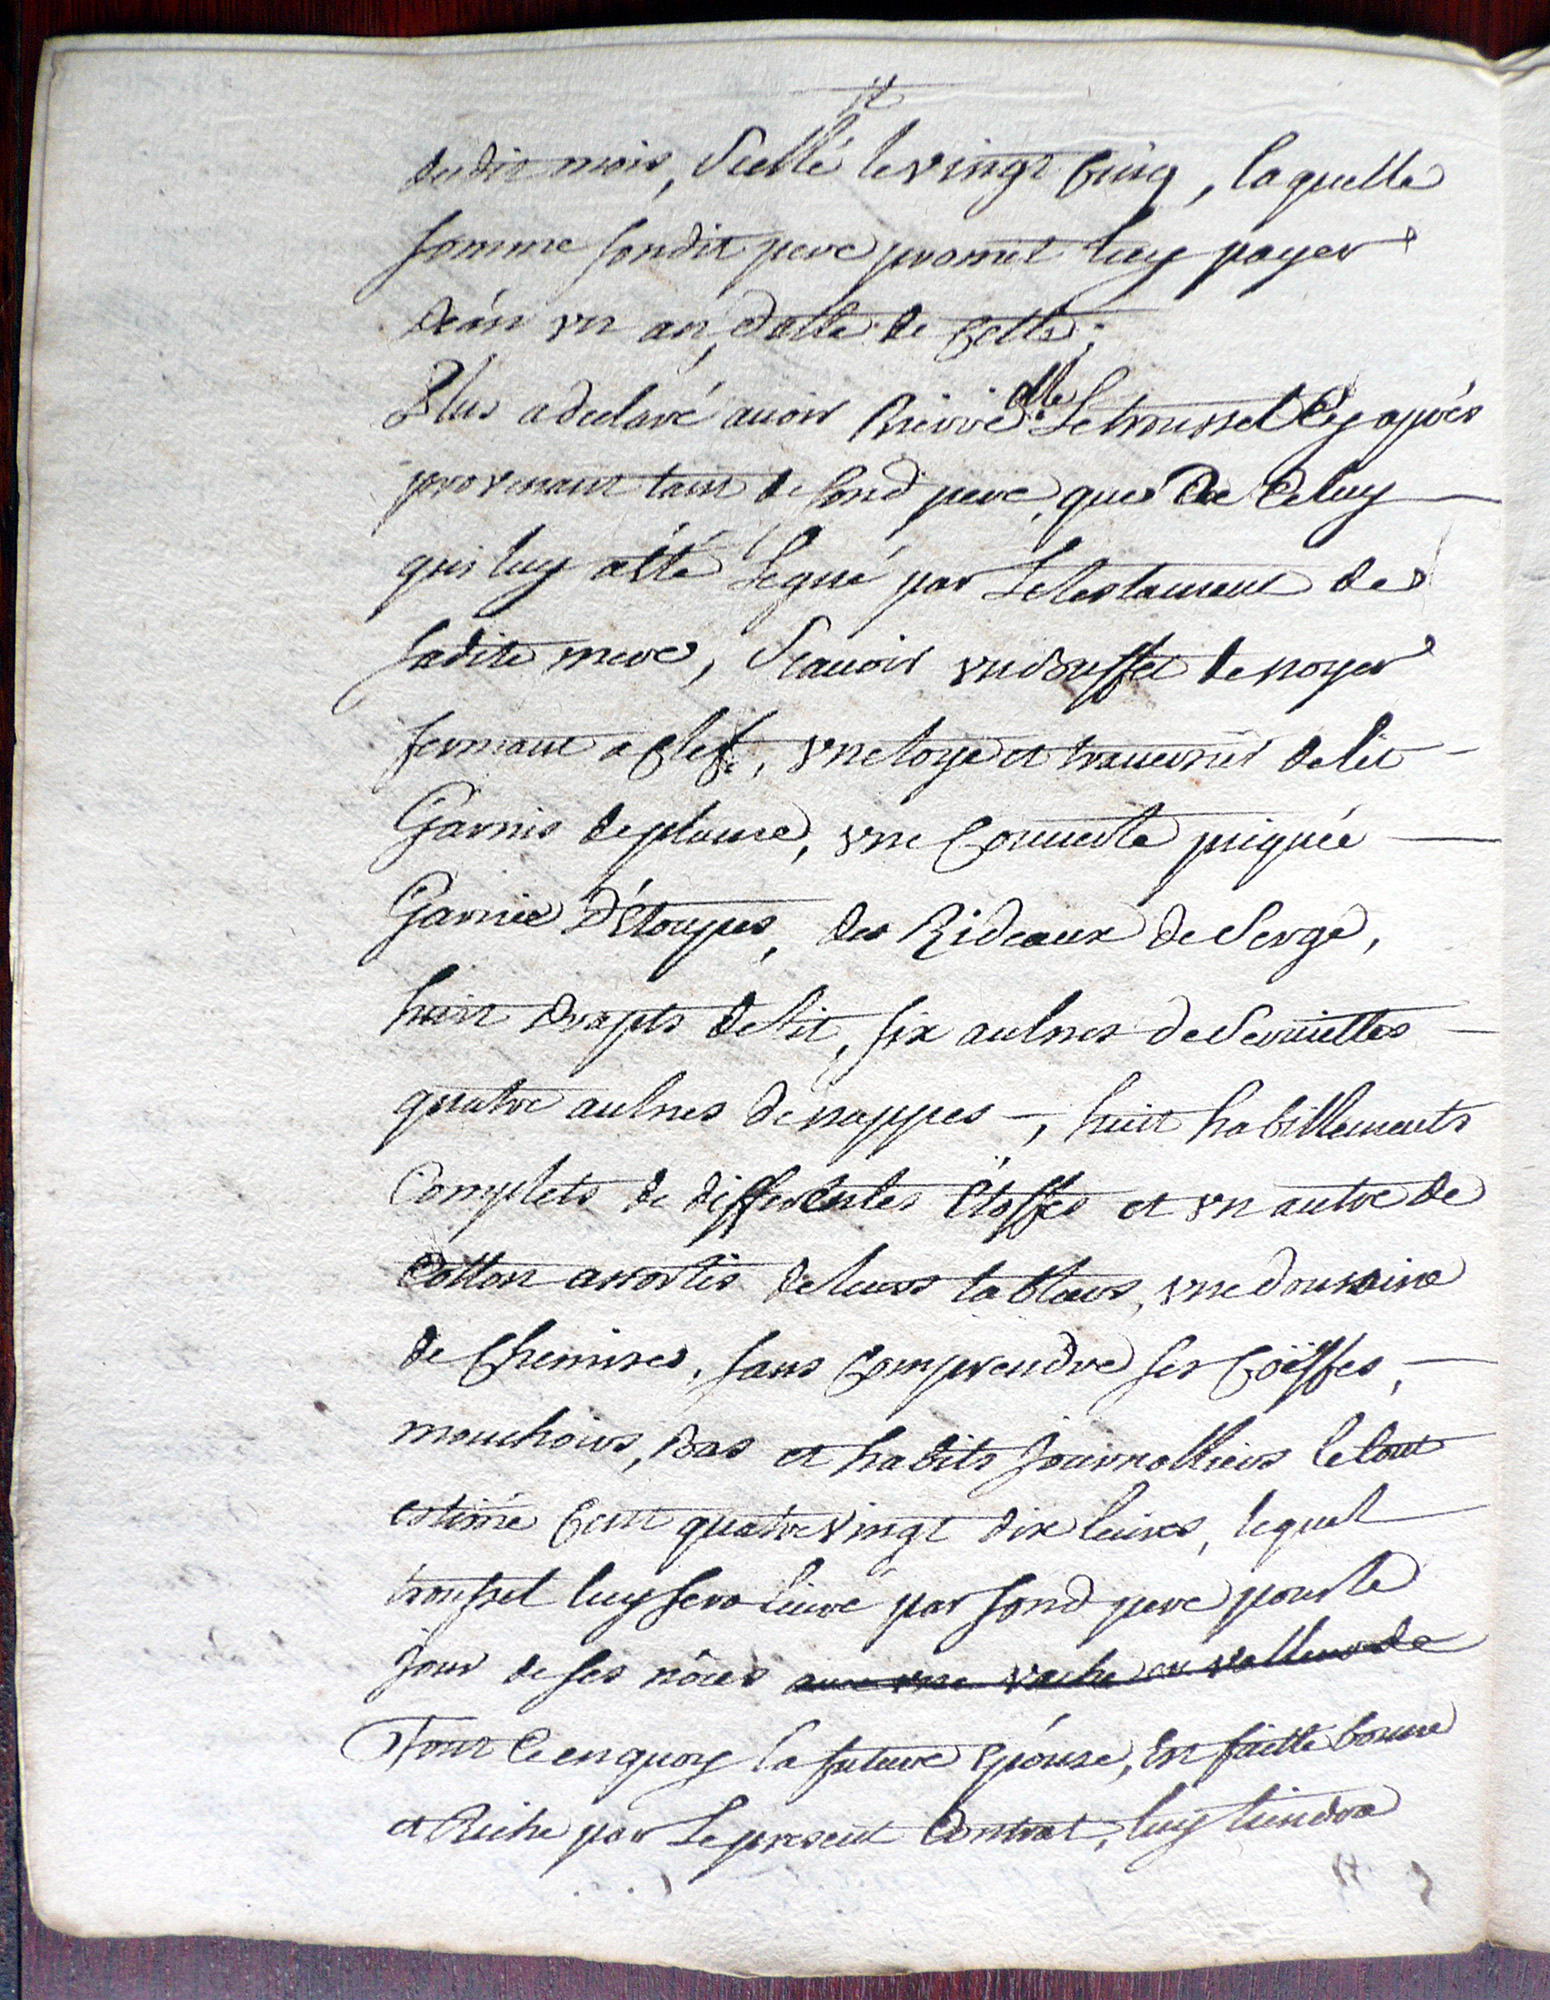 dudit mois, Scellé le vingt cinq, laquelle
somme sondit pere promet luy payer
d'an en an datte de cette;
Plus a declaré auoir Rierre elle Le trousset Cy après
provenant tant de sond pere, que De Celuy
qui luy a été Legué par Le testament de
sadite mere, Scauoir vn Buffet de noyer
fermant a clef, vne toye et trauersier de lit
Garnis de plume, vne Couuerte piquée
Garnie D'Etoupes, des Rideaux de Serge,
huit drapts de lit, six aulnes de Seruiettes
quatre aulnes de nappes, huit habillements
Complets de differentes Etoffes et vn autre de
Cotton assortis de leurs tabliers, vne douzaine
de Chemises, sans Comprendre ses Coëffes,
mouchoirs, Bas et habits Journalliers le tout
estimé Cent quatre vingt dix liures, lequel
troussel luy sera liuré par sond pere pour le
jour de ses nôces auec vne vache en valleur de
Tout Ce en quoy la future Epouse, En faitte bonne
et Riche par Le present Contrat, luy tiendra